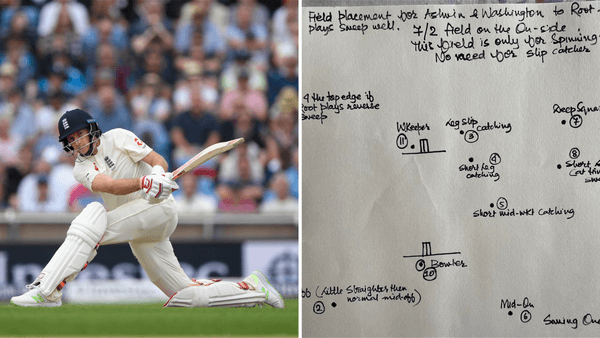 Field placement for Ashwin & Washington to Root -
plays sweep well. 7/2 field on the On-side.
This field is only for Spinning
No need for slip catcher
4 the top edge if
Root plays reverse
sweep
WKeeper
11
Leg slip
3 catching
4
Short leg
catching
Deep Squa
7
8
Short
5
Short mid-wkt catching
Bowler
10
(little straighter then
normal mid-off)
2
Mid-On
6
Saving One